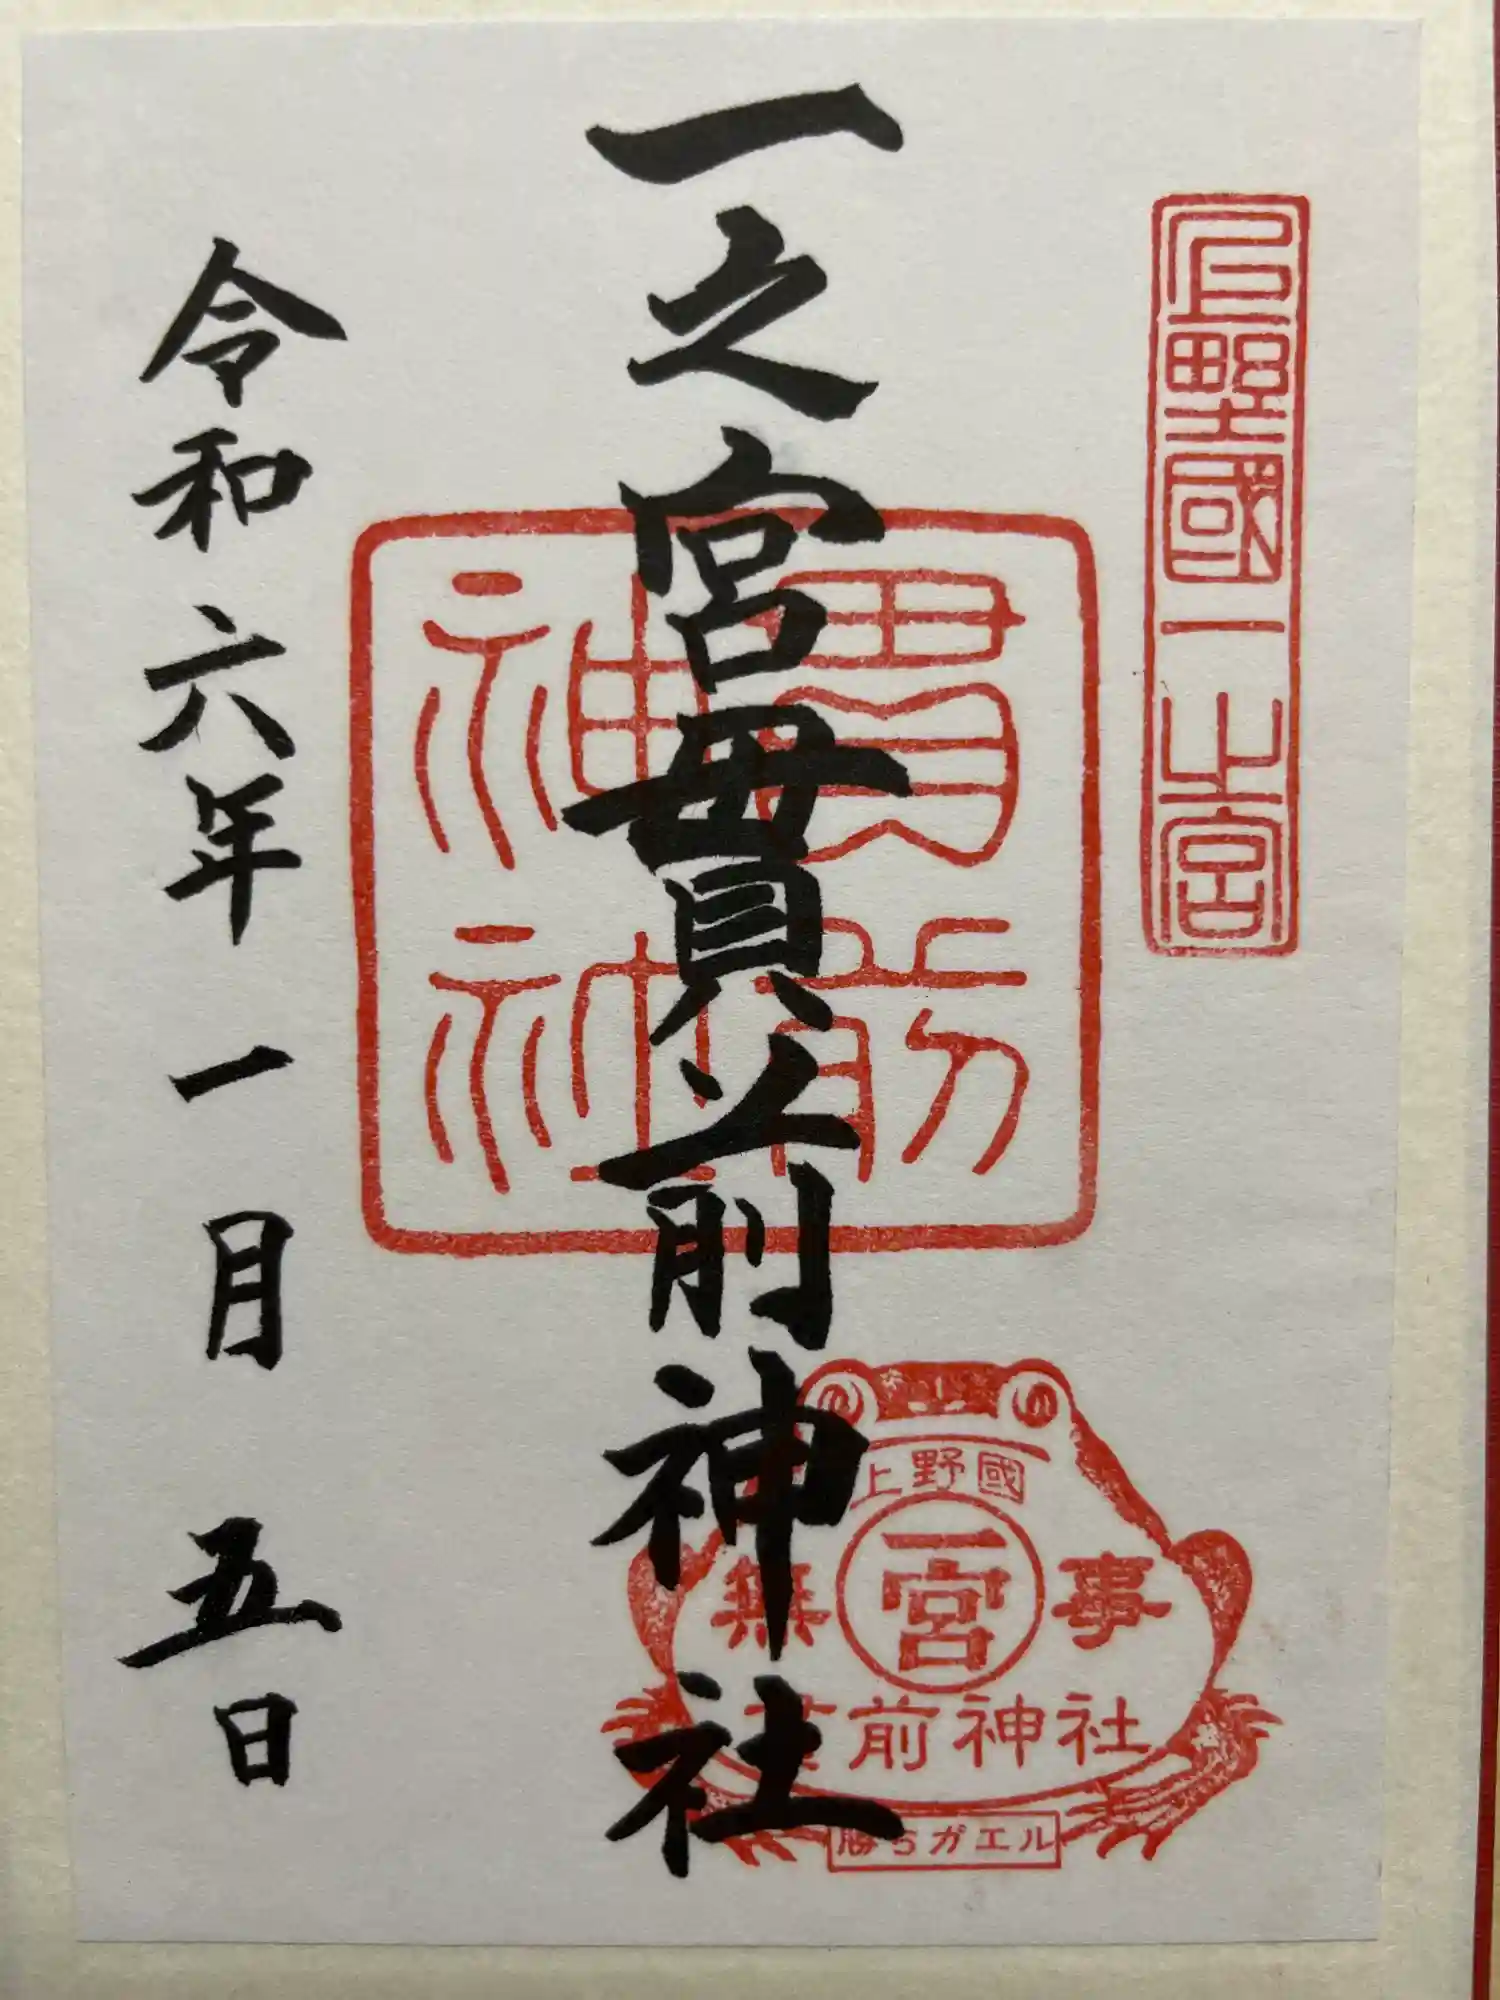 上野國一之宮
一之宮貫前神社
貫前
神社
上野國
無事
一宮
貫前神社
勝ちガエル
令和六年一月五日